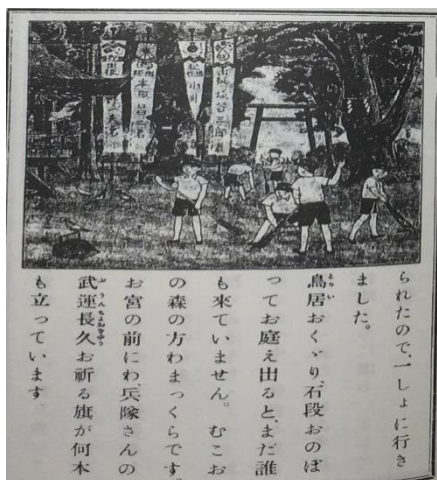 られたので、一しょに行き
ました。
鳥居おくゞり、石段おのぼ
ってお庭え出ると、まだ誰
も來ていません。 むこお
の森の方わまっくらです。
お宮の前にわ、兵隊さんの
武運長久お祈る旗が何本
も立っています